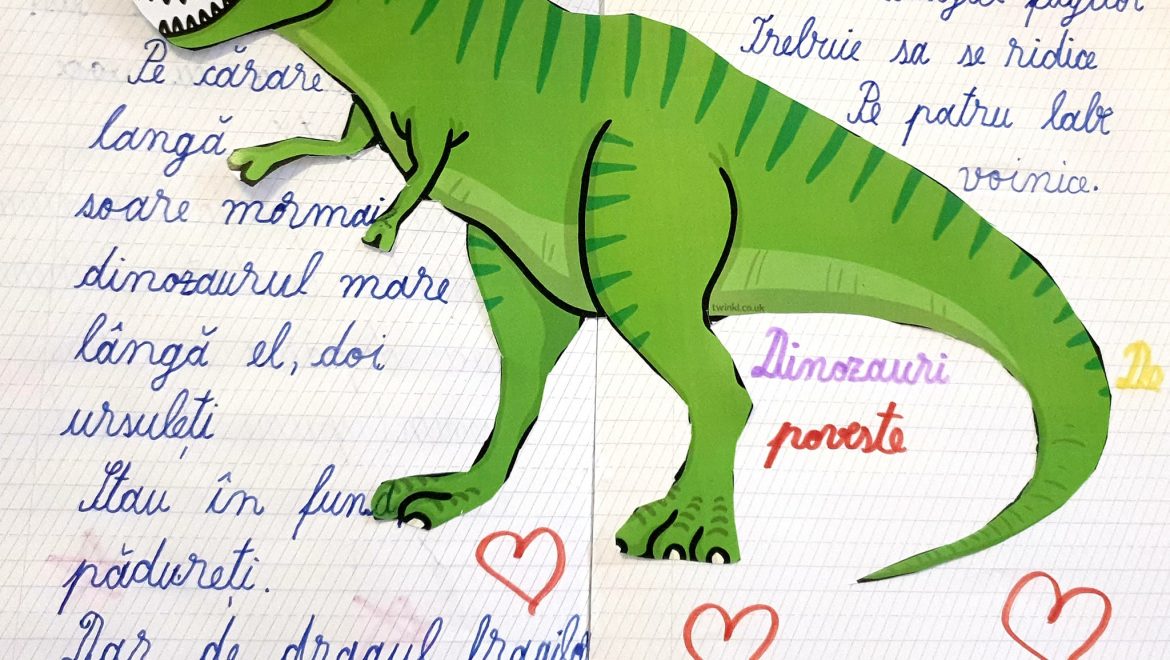 Pe cărare
langă
soare mormai
dinozaurul mare
lângă el, doi
ursuleți
Stau în fund
pădureți.
Dar de dragul fragilor
Trebuie sa se ridice
Pe patru labe
voinice.
twinkl.co.uk
Dinozauri
poveste